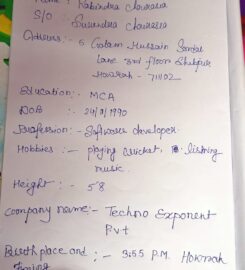 Name :- Rabindra Chourasia
S/O :- Surendra Chourasia
Address :- 5 Golam Hussain Sardar
Lane 3rd floor Shibpur
Howrah - 711102
Education :- MCA
DOB :- 24/9/1990
Profession :- Software developer.
Hobbies :- playing cricket, listning
music.
Height :- 5'8
Company name :- Techno Exponent
Pvt
Birth place and :- 3:55 P.M. Howrah
timing